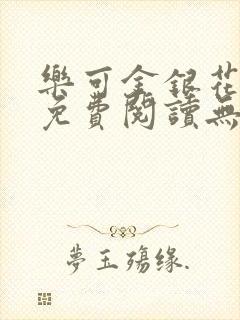 樂可金銀花
免費閱讀無
夢玉殤緣.